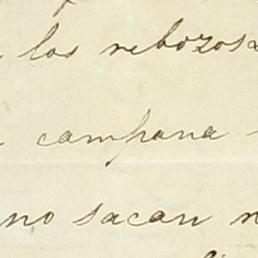 los rebozos
campana
no sacan